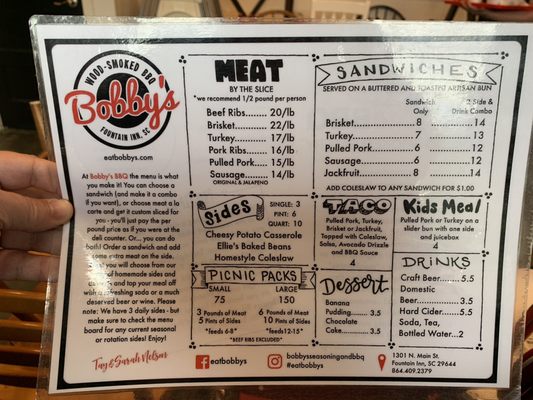 WOOD-SMOKED BBQ
Bobby's
FOUNTAIN INN, SC
eatbobbys.com
At Bobby's BBQ the menu is what
you make it! You can choose a
sandwich (and make it a combo
if you want), or choose meat a la
carte and get custom sliced for
you - you'll just pay the per
pound price as if you were at the
deli counter. Or... you can do
both! Order a sandwich and add
some extra meat on the side.
you will choose from our
homemade sides and
and top your meal off
with a refreshing soda or a much
deserved beer or wine. Please
note: We have 3 daily sides - but
make sure to check the menu
board for any current seasonal
or rotation sides! Enjoy!
Tay & Sarah Nelson
MEAT
BY THE SLICE
*we recommend 1/2 pound per person
Beef Ribs........ 20/lb
Brisket........... 22/lb
Turkey............ 17/lb
Pork Ribs........ 16/lb
Pulled Pork..... 15/lb
Sausage......... 14/lb
ORIGINAL & JALAPENO
Sides
SINGLE: 3
PINT: 6
QUART: 10
Cheesy Potato Casserole
Ellie's Baked Beans
Homestyle Coleslaw
PICNIC PACKS
SMALL LARGE
75 150
3 Pounds of Meat 6 Pounds of Meat
5 Pints of Sides 10 Pints of Sides
*feeds 6-8* *feeds 12-15*
*BEEF RIBS EXCLUDED*
SANDWICHES
SERVED ON A BUTTERED AND TOASTED ARTISAN BUN
Sandwich Only 2 Side & Drink Combo
Brisket............ 8 ............14
Turkey............ 7 ............13
Pulled Pork...... 6 ............12
Sausage.......... 6 ............12
Jackfruit.......... 8 ............14
ADD COLESLAW TO ANY SANDWICH FOR $1.00
TACO
Pulled Pork, Turkey,
Brisket or Jackfruit,
Topped with Coleslaw,
Salsa, Avocado Drizzle
and BBQ Sauce
4
Kids Meal
Pulled Pork or Turkey on a
slider bun with one side
and juicebox
4
Dessert
Banana
Pudding........3.5
Chocolate
Cake............3.5
DRINKS
Craft Beer..........5.5
Domestic
Beer..............3.5
Hard Cider.........5.5
Soda, Tea,
Bottled Water...2
eatbobbys
bobbysseasoningandbbq
#eatbobbys
1301 N. Main St.
Fountain Inn, SC 29644
864.409.2379